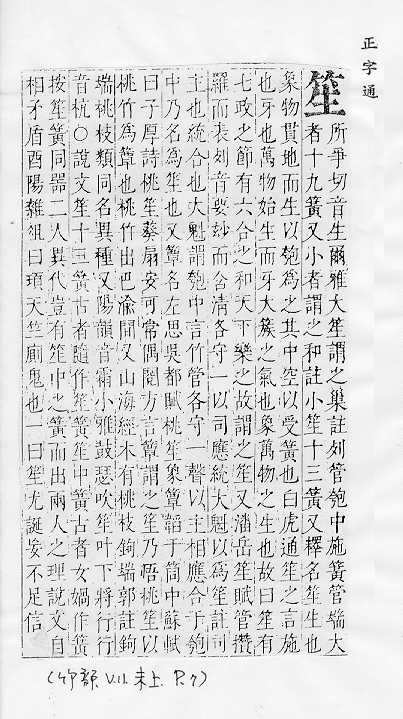 正字通
笙
所爭切音生爾雅大笙謂之巢註列管匏中施簧管端大
者十九簧又小者謂之和註小笙十三簧又釋名笙生也
象物貫地而生以匏爲之其中空以受簧也白虎通笙之言施
也牙也萬物始生而牙大簇之氣也象萬物之生也故曰笙有
七政之節有六合之和天下樂之故謂之笙又潘岳笙賦管攢
羅而表列音要妙而含清各守一以司應統大魁以爲笙註司
主也統合也大魁謂匏中言竹管各守一聲以主相應合于匏
中乃名爲笙也又簟名左思吳都賦桃笙象簟韜于筒中蘇軾
曰子厚詩桃笙葵扇安可常偶閱方言簟謂之笙乃悟桃笙以
桃竹爲簟也桃竹出巴渝間又山海經木有桃枝鉤端郭註鉤
端桃枝類同名異種又陽韻音霜小雅鼓瑟吹笙叶下將行行
音杭○說文笙十三簧古者隨作笙簧笙中簧古者女媧作簧
按笙簧同器二人異代豈有笙中之簧而出兩人之理說文自
相矛盾酉陽雜俎曰項天竺廟鬼也一曰笙尤誕妄不足信
(竹部. V.11. 未上. P.7)